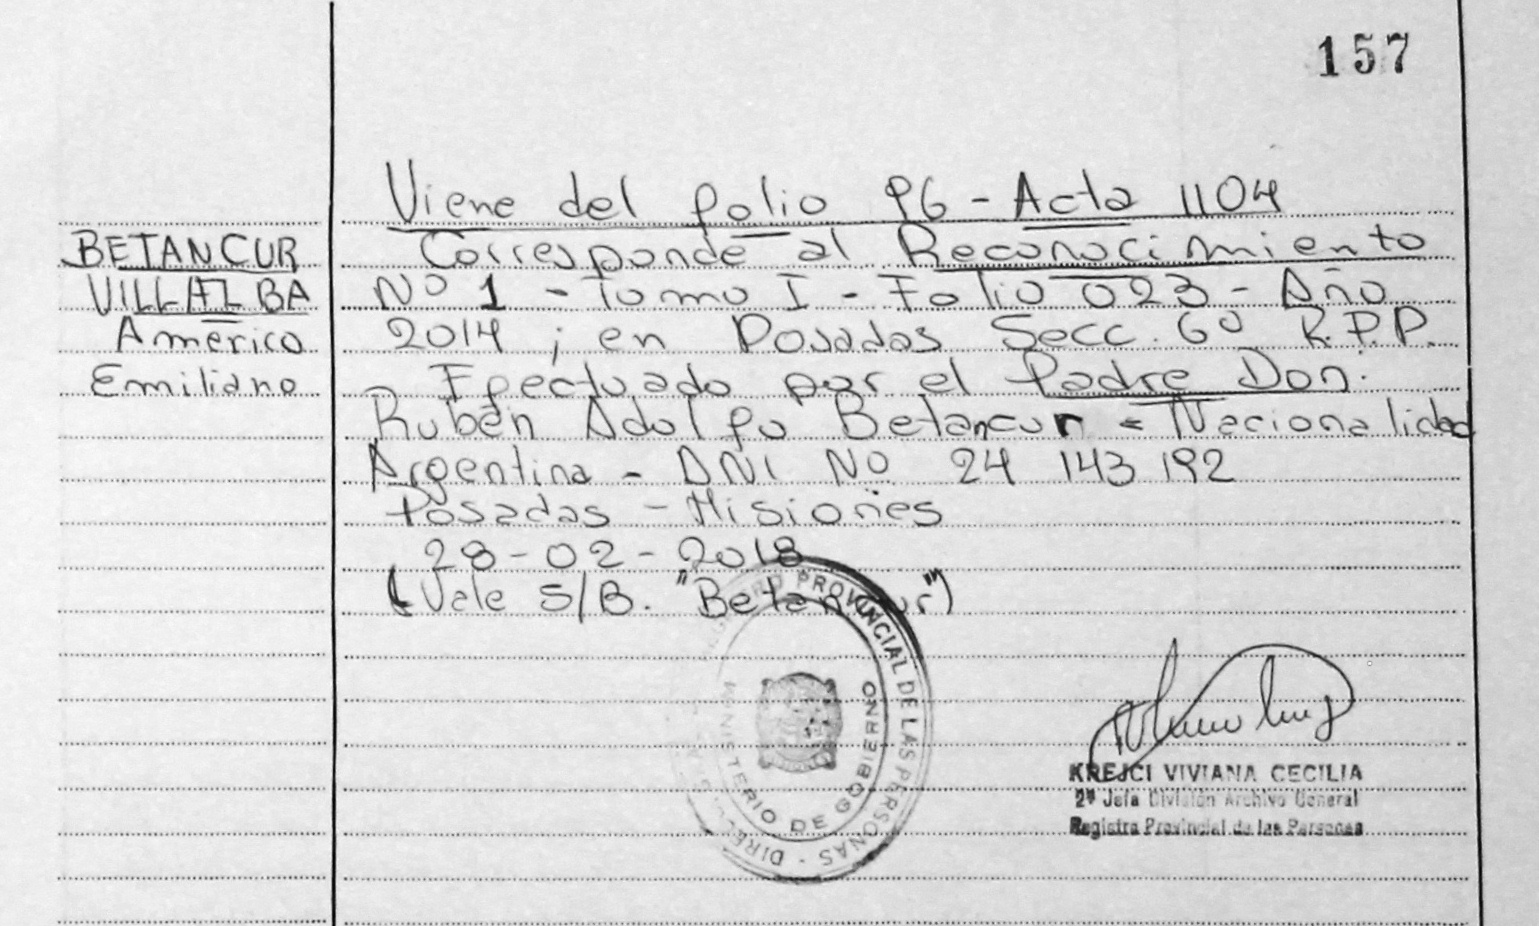 157
Viene del folio 96 - Acta 1104
BETANCUR
VILLALBA
Américo
Emiliano
Corresponde al Reconocimiento
Nº 1 - Tomo I - Folio 023 - Año
2014 ; en Posadas Secc. 6º R.P.P.
Efectuado por el Padre Don:
Rubén Adolfo Betancur - Nacionalidad
Argentina - DNI Nº 24 143 192
Posadas - Misiones
28-02-2018
(Vale S/B. "Betancur")
PROVINCIAL DE LAS PERSONAS - DIREC
MINISTERIO DE GOBIERNO
KREJCI VIVIANA CECILIA
2ª Jefa División Archivo General
Registro Provincial de las Personas